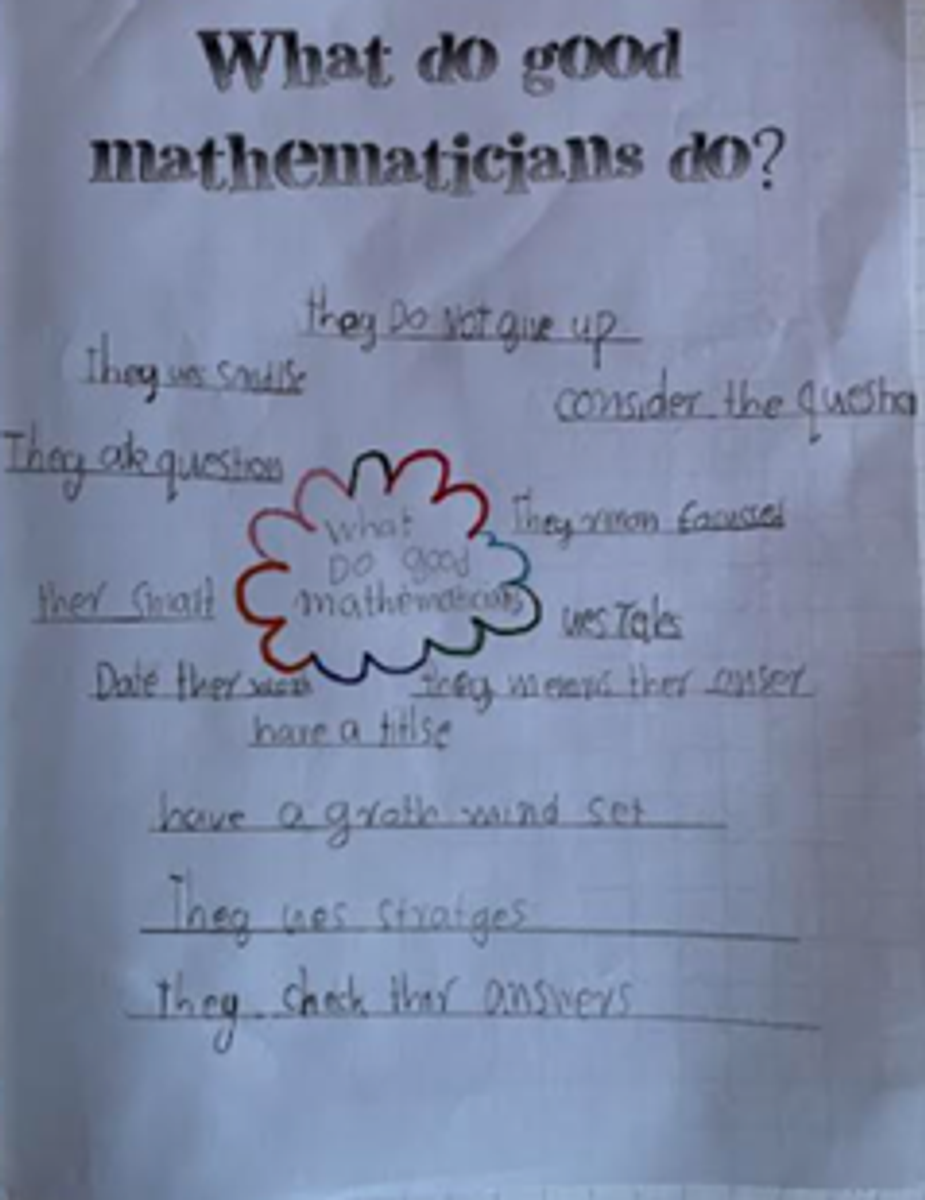 What do good
mathematicians do?
they Do Not give up
They ues
consider the questio
They ask question
They focussed
What
Do good
mathematicians
ther smart
ues
Date ther work
they means ther anser
have a titlse
have a groth mind set
They ues stratges
they check ther answers